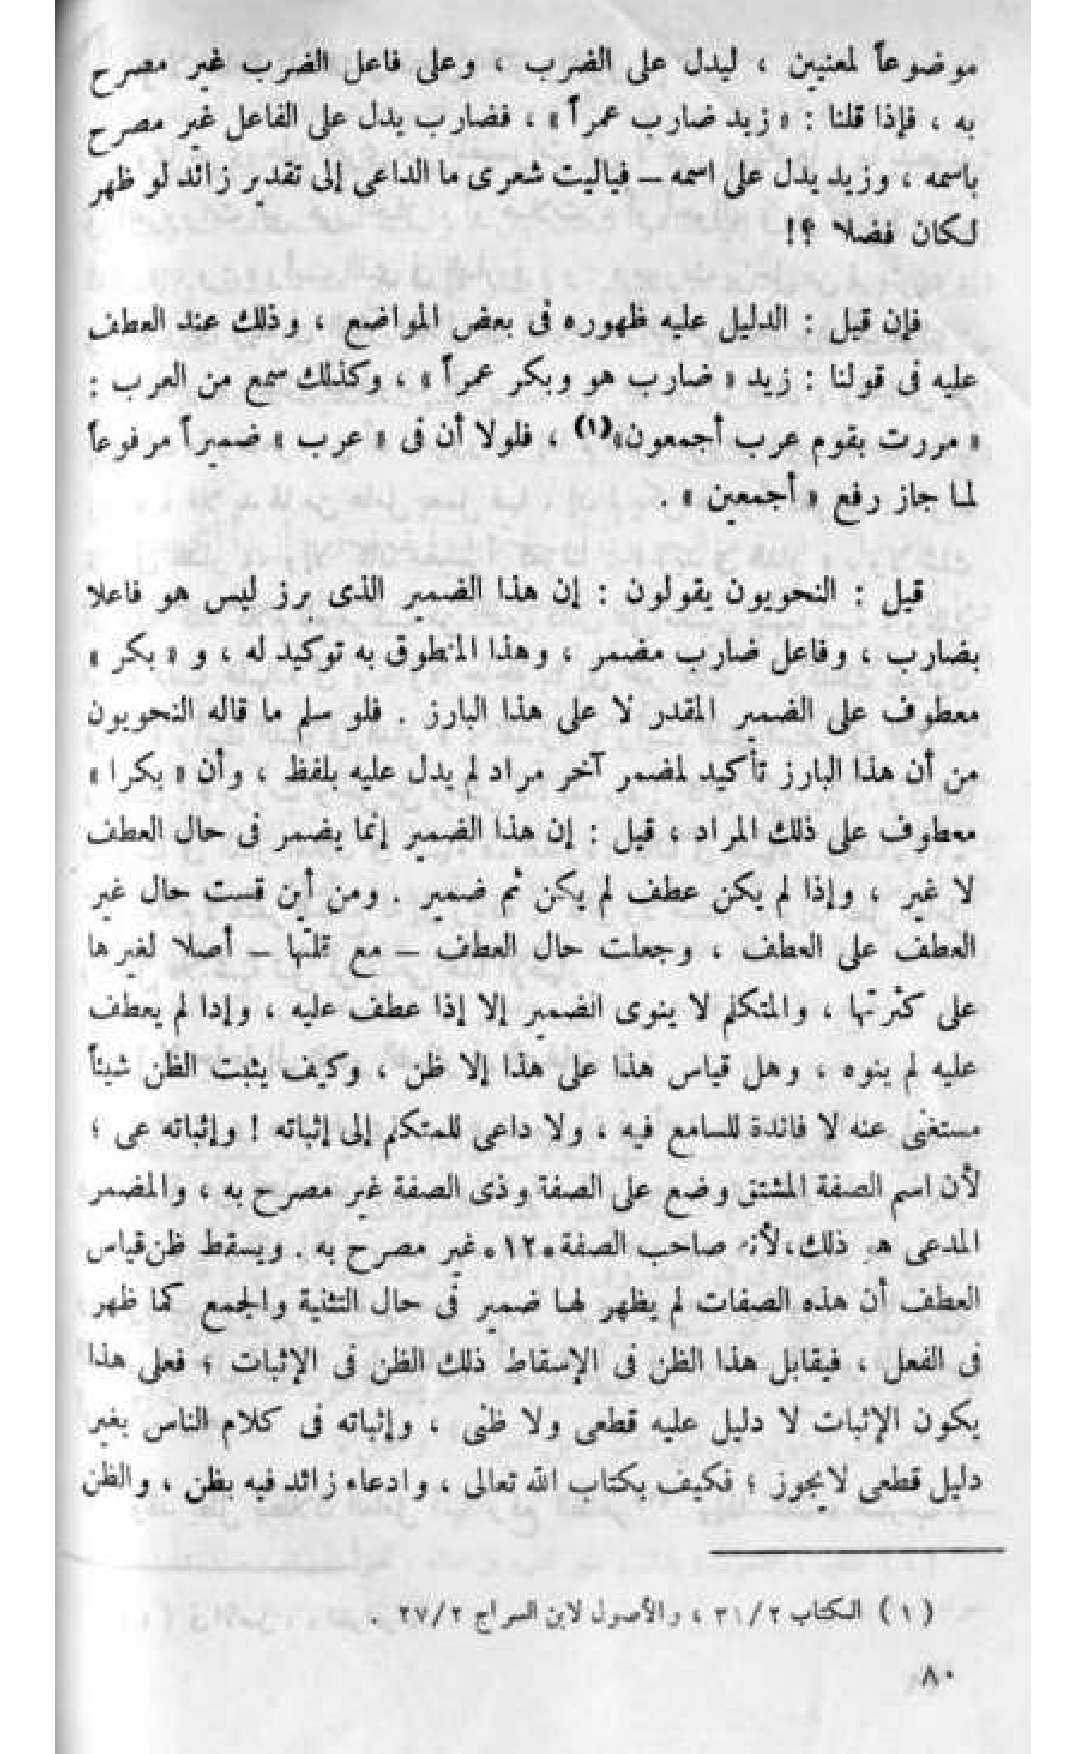 موضوعاً لمعنيين ، ليدل على الضرب ، وعلى فاعل الضرب غير مصرح
به ، فإذا قلنا : « زيد ضارب عمراً » ، فضارب يدل على الفاعل غير مصرح
باسمه ، وزيد يدل على اسمه – فياليت شعرى ما الداعى إلى تقدير زائد لو ظهر
لكان فضلا ؟!
فإن قيل : الدليل عليه ظهوره فى بعض المواضع ، وذلك عند العطف
عليه فى قولنا : زيد « ضارب هو وبكر عمراً » ، وكذلك سمع من العرب :
« مررت بقوم عرب أجمعون»(١) ، فلولا أن فى « عرب » ضميراً مرفوعاً
لما جاز رفع « أجمعين » .
قيل : النحويون يقولون : إن هذا الضمير الذى برز ليس هو فاعلا
بضارب ، وفاعل ضارب مضمر ، وهذا المنطوق به توكيد له ، و « بكر »
معطوف على الضمير المقدر لا على هذا البارز . فلو سلم ما قاله النحويون
من أن هذا البارز تأكيد لمضمر آخر مراد لم يدل عليه بلفظ ، وأن « بكرا »
معطوف على ذلك المراد ، قيل : إن هذا الضمير إنما يضمر فى حال العطف
لا غير ، وإذا لم يكن عطف لم يكن ثم ضمير . ومن أين قست حال غير
العطف على العطف ، وجعلت حال العطف – مع قلتها – أصلا لغيرها
على كثرتها ، والمتكلم لا ينوى الضمير إلا إذا عطف عليه ، وإدا لم يعطف
عليه لم ينوه ، وهل قياس هذا على هذا إلا ظن ، وكيف يثبت الظن شيئاً
مستغنى عنه لا فائدة للسامع فيه ، ولا داعى للمتكلم إلى إثباته ! وإثباته عى ؛
لأن اسم الصفة المشتق وضع على الصفة وذى الصفة غير مصرح به ، والمضمر
المدعى هو ذلك،لأنه صاحب الصفة«١٢»غير مصرح به . ويسقط ظن قياس
العطف أن هذه الصفات لم يظهر لها ضمير فى حال التثنية والجمع كما ظهر
فى الفعل ، فيقابل هذا الظن فى الإسقاط ذلك الظن فى الإثبات ؛ فعلى هذا
يكون الإثبات لا دليل عليه قطعى ولا ظنى ، وإثباته فى كلام الناس بغير
دليل قطعى لايجوز ؛ فكيف بكتاب الله تعالى ، وادعاء زائد فيه بظن ، والظن
(١) الكتاب ٣١/٢ ، والأصول لابن السراج ٢٧/٢ .
٨٠